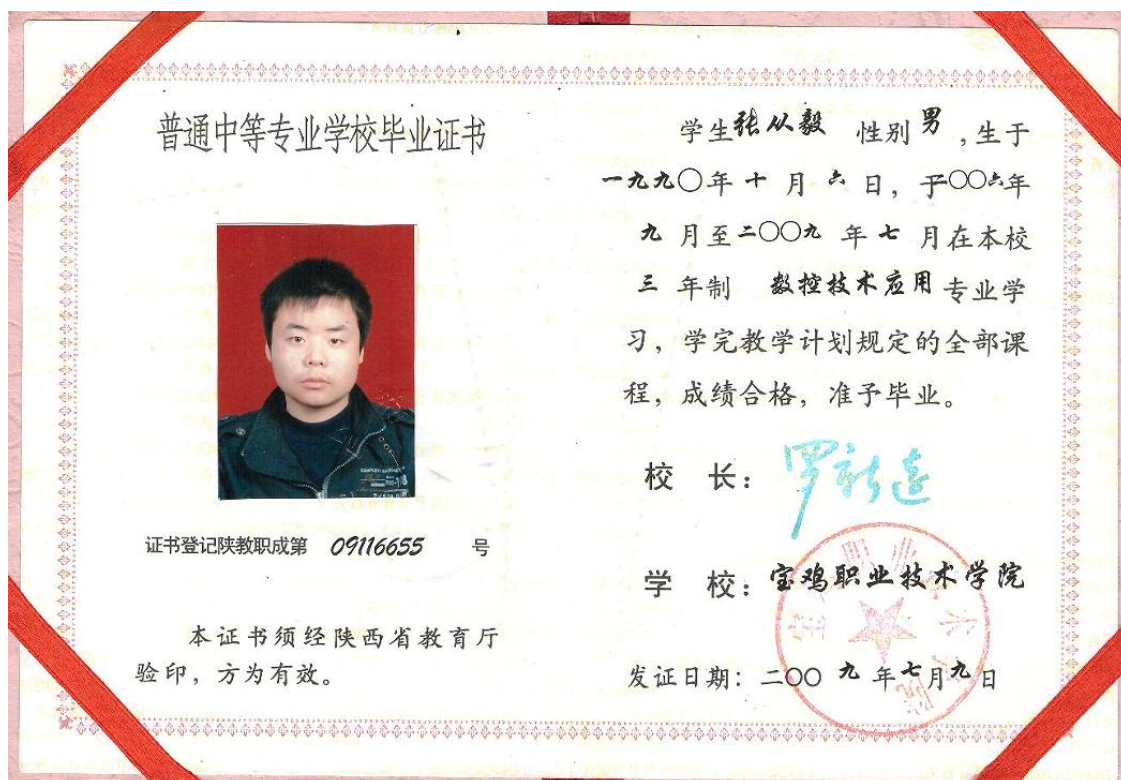 普通中等专业学校毕业证书
证书登记陕教职成第 09116655 号
本证书须经陕西省教育厅
验印，方为有效。
学生张从毅 性别男，生于
一九九〇年十月六日，于二〇〇六年
九月至二〇〇九年七月在本校
三年制 数控技术应用专业学
习，学完教学计划规定的全部课
程，成绩合格，准予毕业。
校 长：
学 校：宝鸡职业技术学院
发证日期：二〇〇九年七月九日